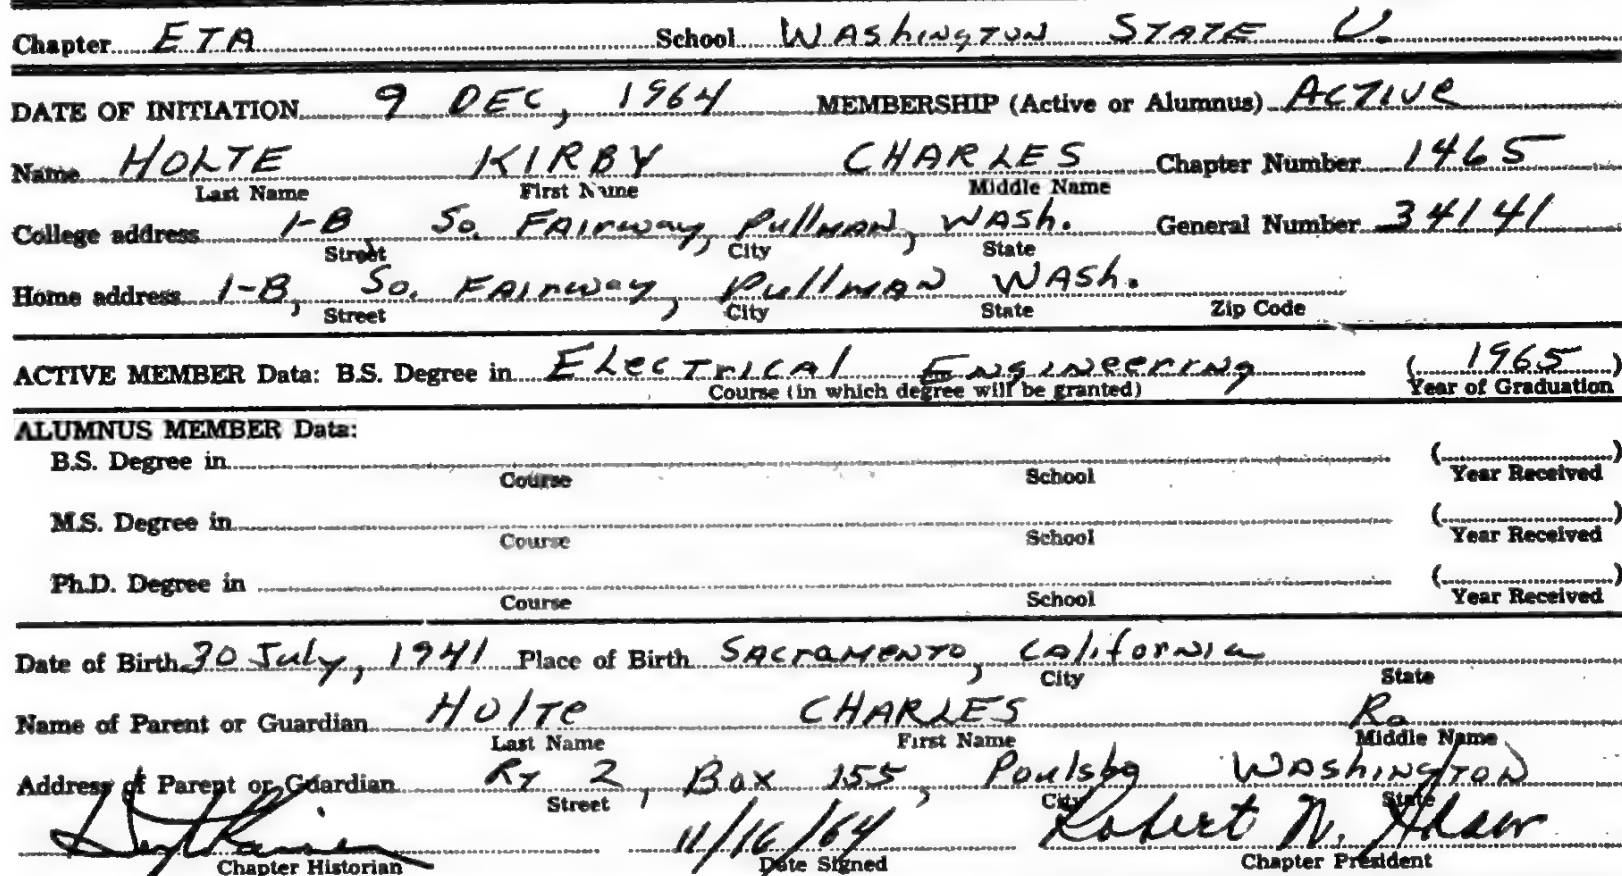 Chapter ETA School WAShingTON STATE U.
DATE OF INITIATION 9 DEC, 1964 MEMBERSHIP (Active or Alumnus) ACTIVE
Name HOLTE KIRBY CHARLES Chapter Number 1465
Last Name First Name Middle Name
College address 1-B So. FAIrway, Pullman, WAsh. General Number 34141
Street City State
Home address 1-B, So. FAIrway, Pullman WASh.
Street City State Zip Code
ACTIVE MEMBER Data: B.S. Degree in ELecTrICAl Engineering (1965)
Course (in which degree will be granted) Year of Graduation
ALUMNUS MEMBER Data:
B.S. Degree in ( )
Course School Year Received
M.S. Degree in ( )
Course School Year Received
Ph.D. Degree in ( )
Course School Year Received
Date of Birth 30 July, 1941 Place of Birth SACrAMENTO, California
City State
Name of Parent or Guardian HOlTe CHARLES R.
Last Name First Name Middle Name
Address of Parent or Guardian RT 2, Box 155, Poulsbo WAshINGTON
Street City State
11/16/64 Robert N.
Chapter Historian Date Signed Chapter President